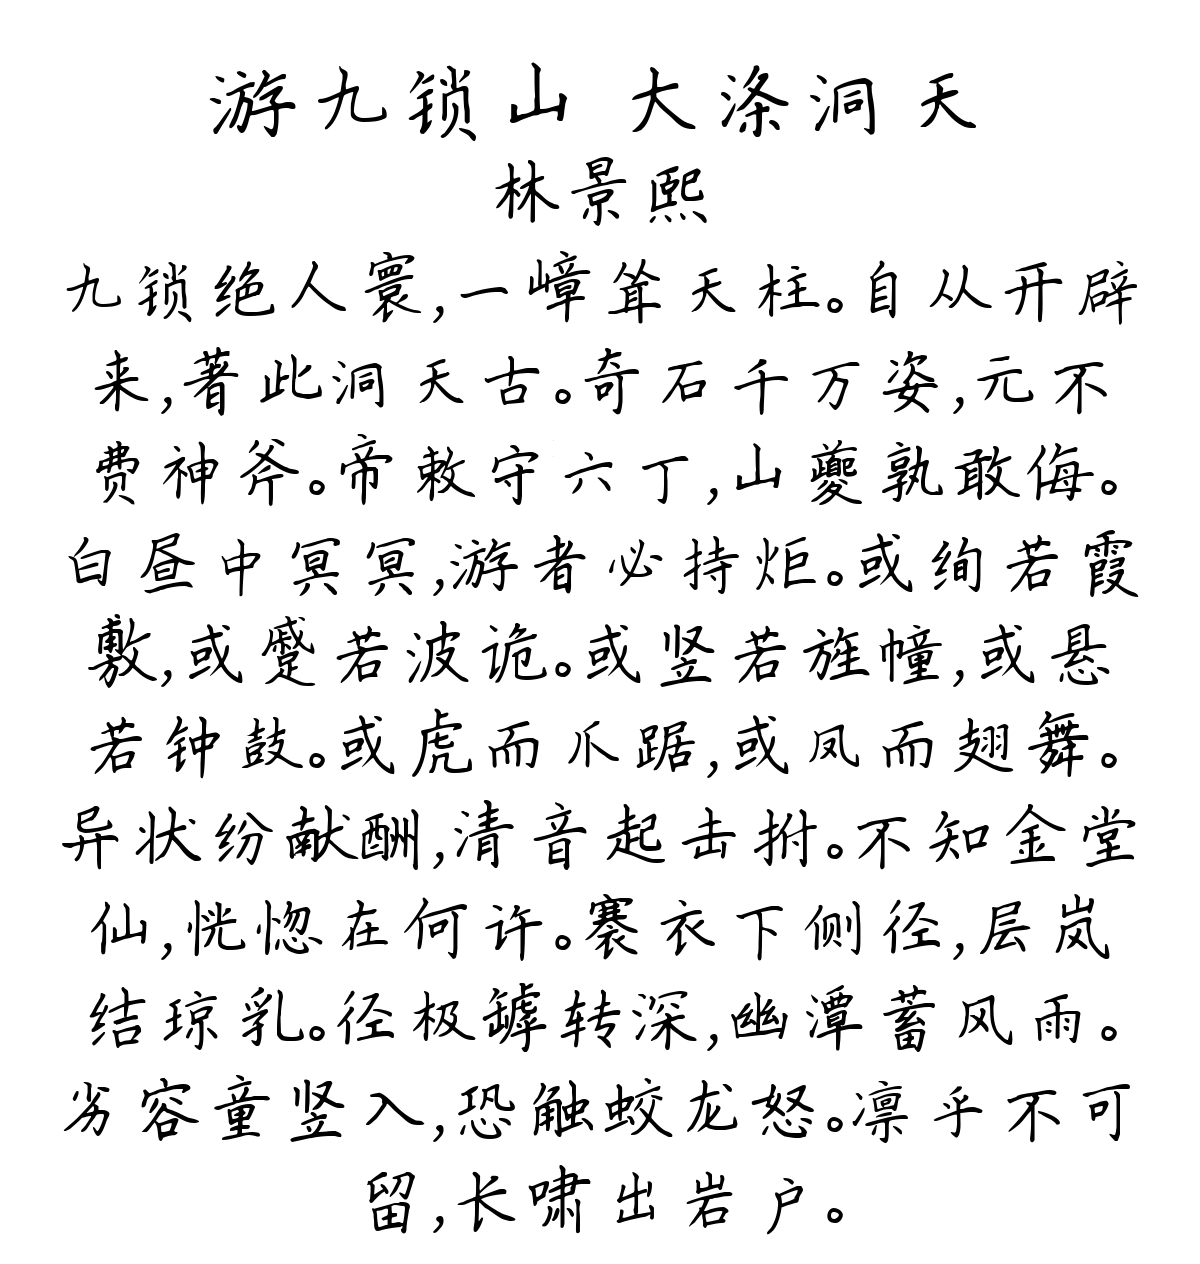 游九锁山 大涤洞天
林景熙
九锁绝人寰,一嶂耸天柱。自从开辟
来,著此洞天古。奇石千万姿,元不
费神斧。帝敕守六丁,山夔孰敢侮。
白昼中冥冥,游者必持炬。或绚若霞
敷,或蹙若波诡。或竖若旌幢,或悬
若钟鼓。或虎而爪踞,或凤而翅舞。
异状纷献酬,清音起击拊。不知金堂
仙,恍惚在何许。褰衣下侧径,层岚
结琼乳。径极罅转深,幽潭蓄风雨。
劣容童竖入,恐触蛟龙怒。凛乎不可
留,长啸出岩户。